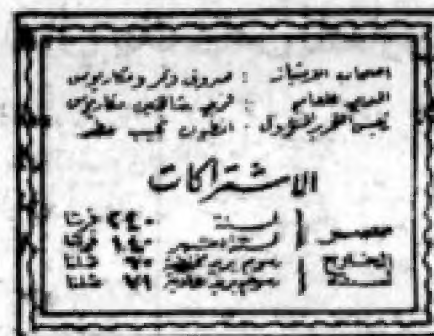 اصحاب الامتياز : صروف ونمر ومكاريوس
المدير العام : فريد شاهين مكاريوس
رئيس التحرير المسؤول : انطون نجيب مطر
الاشتراكات
مصر لسنة ٢٤٠ قرشا
لستة اشهر ١٤٠ قرشا
الخارج رسوم بريد مخفضة ٦٠ شلنا
لسنة رسوم بريد عادية ٧٦ شلنا